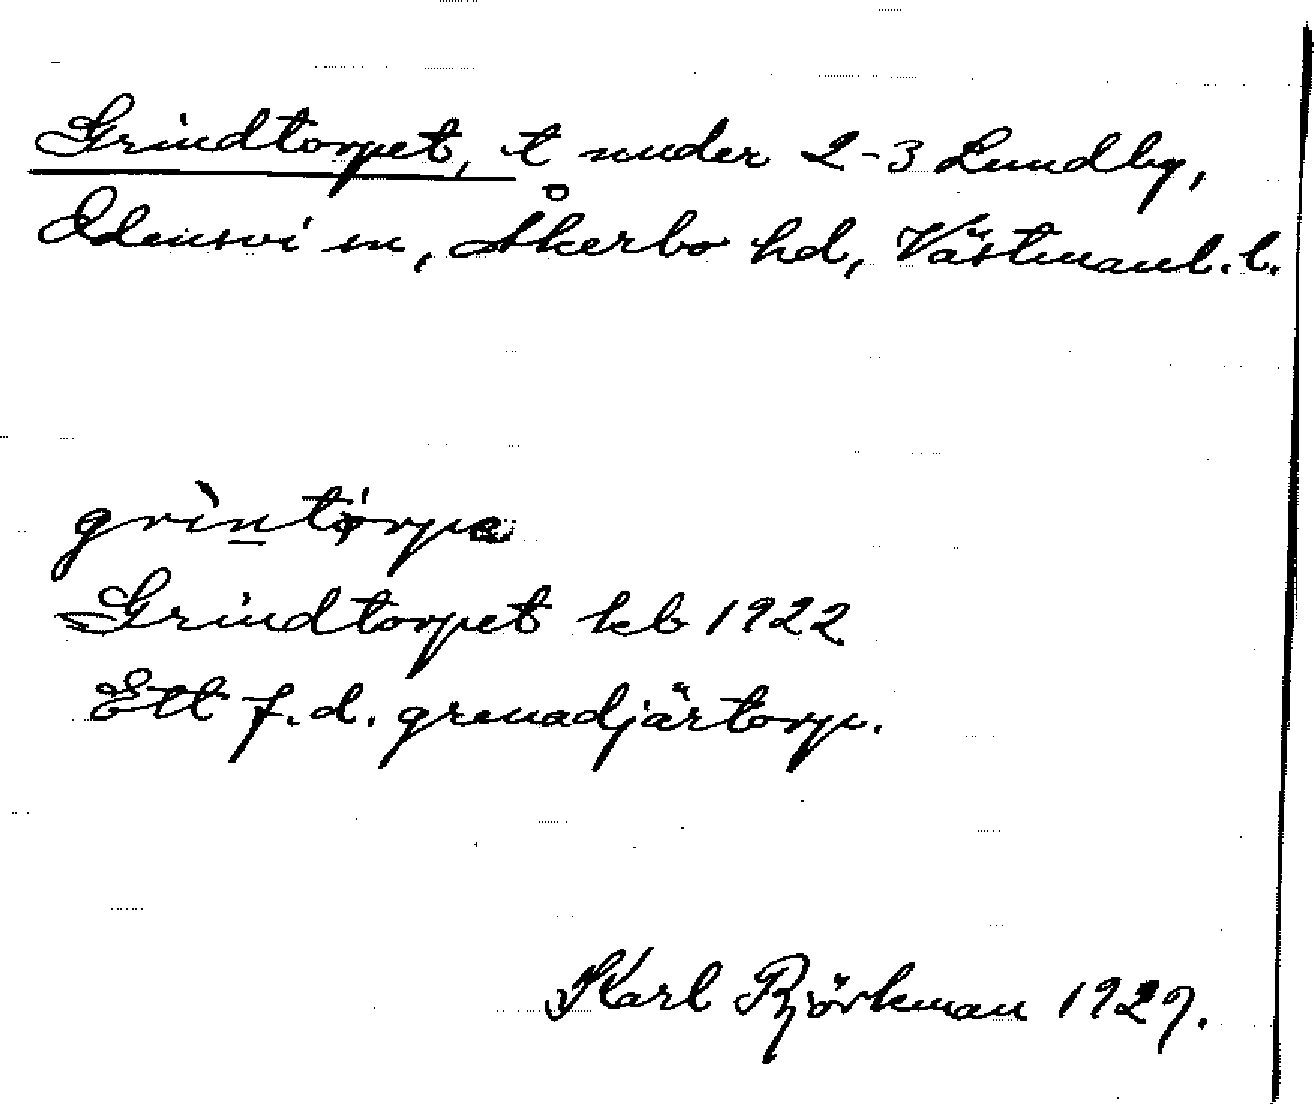 Grindtorpet, t under 2-3 Lundby,
Odensvi sn, Åkerbo hd, Västmanl. l.
grìntórpe
Grindtorpet kb 1922
Ett f.d. grenadjärtorp.
Karl Björkman 1927.